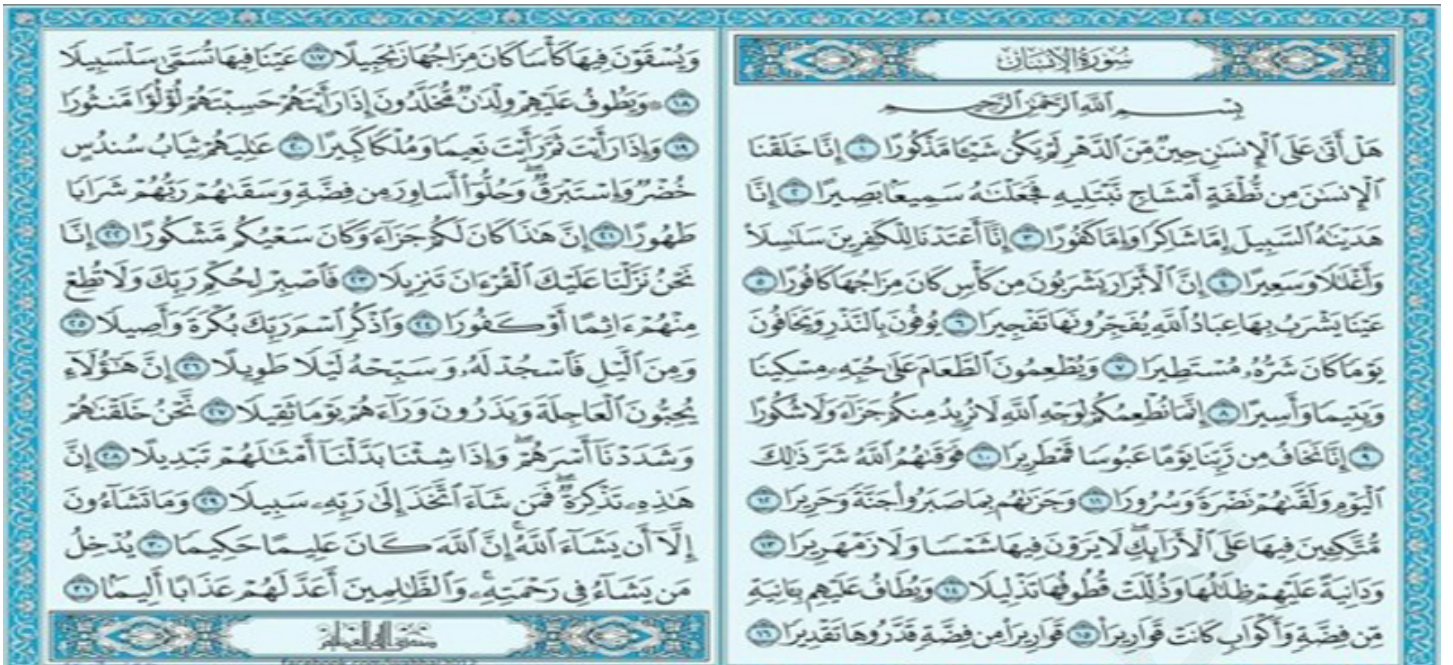 سُورَةُ الإِنسَانِ
بِسْمِ اللَّهِ الرَّحْمَٰنِ الرَّحِيمِ
هَلْ أَتَىٰ عَلَى الْإِنسَٰنِ حِينٌ مِّنَ الدَّهْرِ لَمْ يَكُن شَيْـًٔا مَّذْكُورًا ١ إِنَّا خَلَقْنَا
الْإِنسَٰنَ مِن نُّطْفَةٍ أَمْشَاجٍ نَّبْتَلِيهِ فَجَعَلْنَٰهُ سَمِيعًۢا بَصِيرًا ٢ إِنَّا
هَدَيْنَٰهُ السَّبِيلَ إِمَّا شَاكِرًا وَإِمَّا كَفُورًا ٣ إِنَّآ أَعْتَدْنَا لِلْكَٰفِرِينَ سَلَٰسِلَا۟
وَأَغْلَٰلًا وَسَعِيرًا ٤ إِنَّ الْأَبْرَارَ يَشْرَبُونَ مِن كَأْسٍ كَانَ مِزَاجُهَا كَافُورًا ٥
عَيْنًا يَشْرَبُ بِهَا عِبَادُ اللَّهِ يُفَجِّرُونَهَا تَفْجِيرًا ٦ يُوفُونَ بِالنَّذْرِ وَيَخَافُونَ
يَوْمًا كَانَ شَرُّهُۥ مُسْتَطِيرًا ٧ وَيُطْعِمُونَ الطَّعَامَ عَلَىٰ حُبِّهِۦ مِسْكِينًا
وَيَتِيمًا وَأَسِيرًا ٨ إِنَّمَا نُطْعِمُكُمْ لِوَجْهِ اللَّهِ لَا نُرِيدُ مِنكُمْ جَزَآءً وَلَا شُكُورًا
٩ إِنَّا نَخَافُ مِن رَّبِّنَا يَوْمًا عَبُوسًا قَمْطَرِيرًا ١٠ فَوَقَىٰهُمُ اللَّهُ شَرَّ ذَٰلِكَ
الْيَوْمِ وَلَقَّىٰهُمْ نَضْرَةً وَسُرُورًا ١١ وَجَزَىٰهُم بِمَا صَبَرُوا۟ جَنَّةً وَحَرِيرًا ١٢
مُّتَّكِـِٔينَ فِيهَا عَلَى الْأَرَآئِكِ ۖ لَا يَرَوْنَ فِيهَا شَمْسًا وَلَا زَمْهَرِيرًا ١٣
وَدَانِيَةً عَلَيْهِمْ ظِلَٰلُهَا وَذُلِّلَتْ قُطُوفُهَا تَذْلِيلًا ١٤ وَيُطَافُ عَلَيْهِم بِـَٔانِيَةٍ
مِّن فِضَّةٍ وَأَكْوَابٍ كَانَتْ قَوَارِيرَا۠ ١٥ قَوَارِيرَا۟ مِن فِضَّةٍ قَدَّرُوهَا تَقْدِيرًا ١٦
وَيُسْقَوْنَ فِيهَا كَأْسًا كَانَ مِزَاجُهَا زَنجَبِيلًا ١٧ عَيْنًا فِيهَا تُسَمَّىٰ سَلْسَبِيلًا
١٨ ۞ وَيَطُوفُ عَلَيْهِمْ وِلْدَٰنٌ مُّخَلَّدُونَ إِذَا رَأَيْتَهُمْ حَسِبْتَهُمْ لُؤْلُؤًا مَّنثُورًا
١٩ وَإِذَا رَأَيْتَ ثَمَّ رَأَيْتَ نَعِيمًا وَمُلْكًا كَبِيرًا ٢٠ عَٰلِيَهُمْ ثِيَابُ سُندُسٍ
خُضْرٌ وَإِسْتَبْرَقٌ ۖ وَحُلُّوٓا۟ أَسَاوِرَ مِن فِضَّةٍ وَسَقَىٰهُمْ رَبُّهُمْ شَرَابًا
طَهُورًا ٢١ إِنَّ هَٰذَا كَانَ لَكُمْ جَزَآءً وَكَانَ سَعْيُكُم مَّشْكُورًا ٢٢ إِنَّا
نَحْنُ نَزَّلْنَا عَلَيْكَ الْقُرْءَانَ تَنزِيلًا ٢٣ فَاصْبِرْ لِحُكْمِ رَبِّكَ وَلَا تُطِعْ
مِنْهُمْ ءَاثِمًا أَوْ كَفُورًا ٢٤ وَاذْكُرِ اسْمَ رَبِّكَ بُكْرَةً وَأَصِيلًا ٢٥
وَمِنَ الَّيْلِ فَاسْجُدْ لَهُۥ وَسَبِّحْهُ لَيْلًا طَوِيلًا ٢٦ إِنَّ هَٰٓؤُلَآءِ
يُحِبُّونَ الْعَاجِلَةَ وَيَذَرُونَ وَرَآءَهُمْ يَوْمًا ثَقِيلًا ٢٧ نَّحْنُ خَلَقْنَٰهُمْ
وَشَدَدْنَآ أَسْرَهُمْ ۖ وَإِذَا شِئْنَا بَدَّلْنَآ أَمْثَٰلَهُمْ تَبْدِيلًا ٢٨ إِنَّ
هَٰذِهِۦ تَذْكِرَةٌ ۖ فَمَن شَآءَ اتَّخَذَ إِلَىٰ رَبِّهِۦ سَبِيلًا ٢٩ وَمَا تَشَآءُونَ
إِلَّآ أَن يَشَآءَ اللَّهُ ۚ إِنَّ اللَّهَ كَانَ عَلِيمًا حَكِيمًا ٣٠ يُدْخِلُ
مَن يَشَآءُ فِي رَحْمَتِهِۦ ۚ وَالظَّٰلِمِينَ أَعَدَّ لَهُمْ عَذَابًا أَلِيمًۢا ٣١